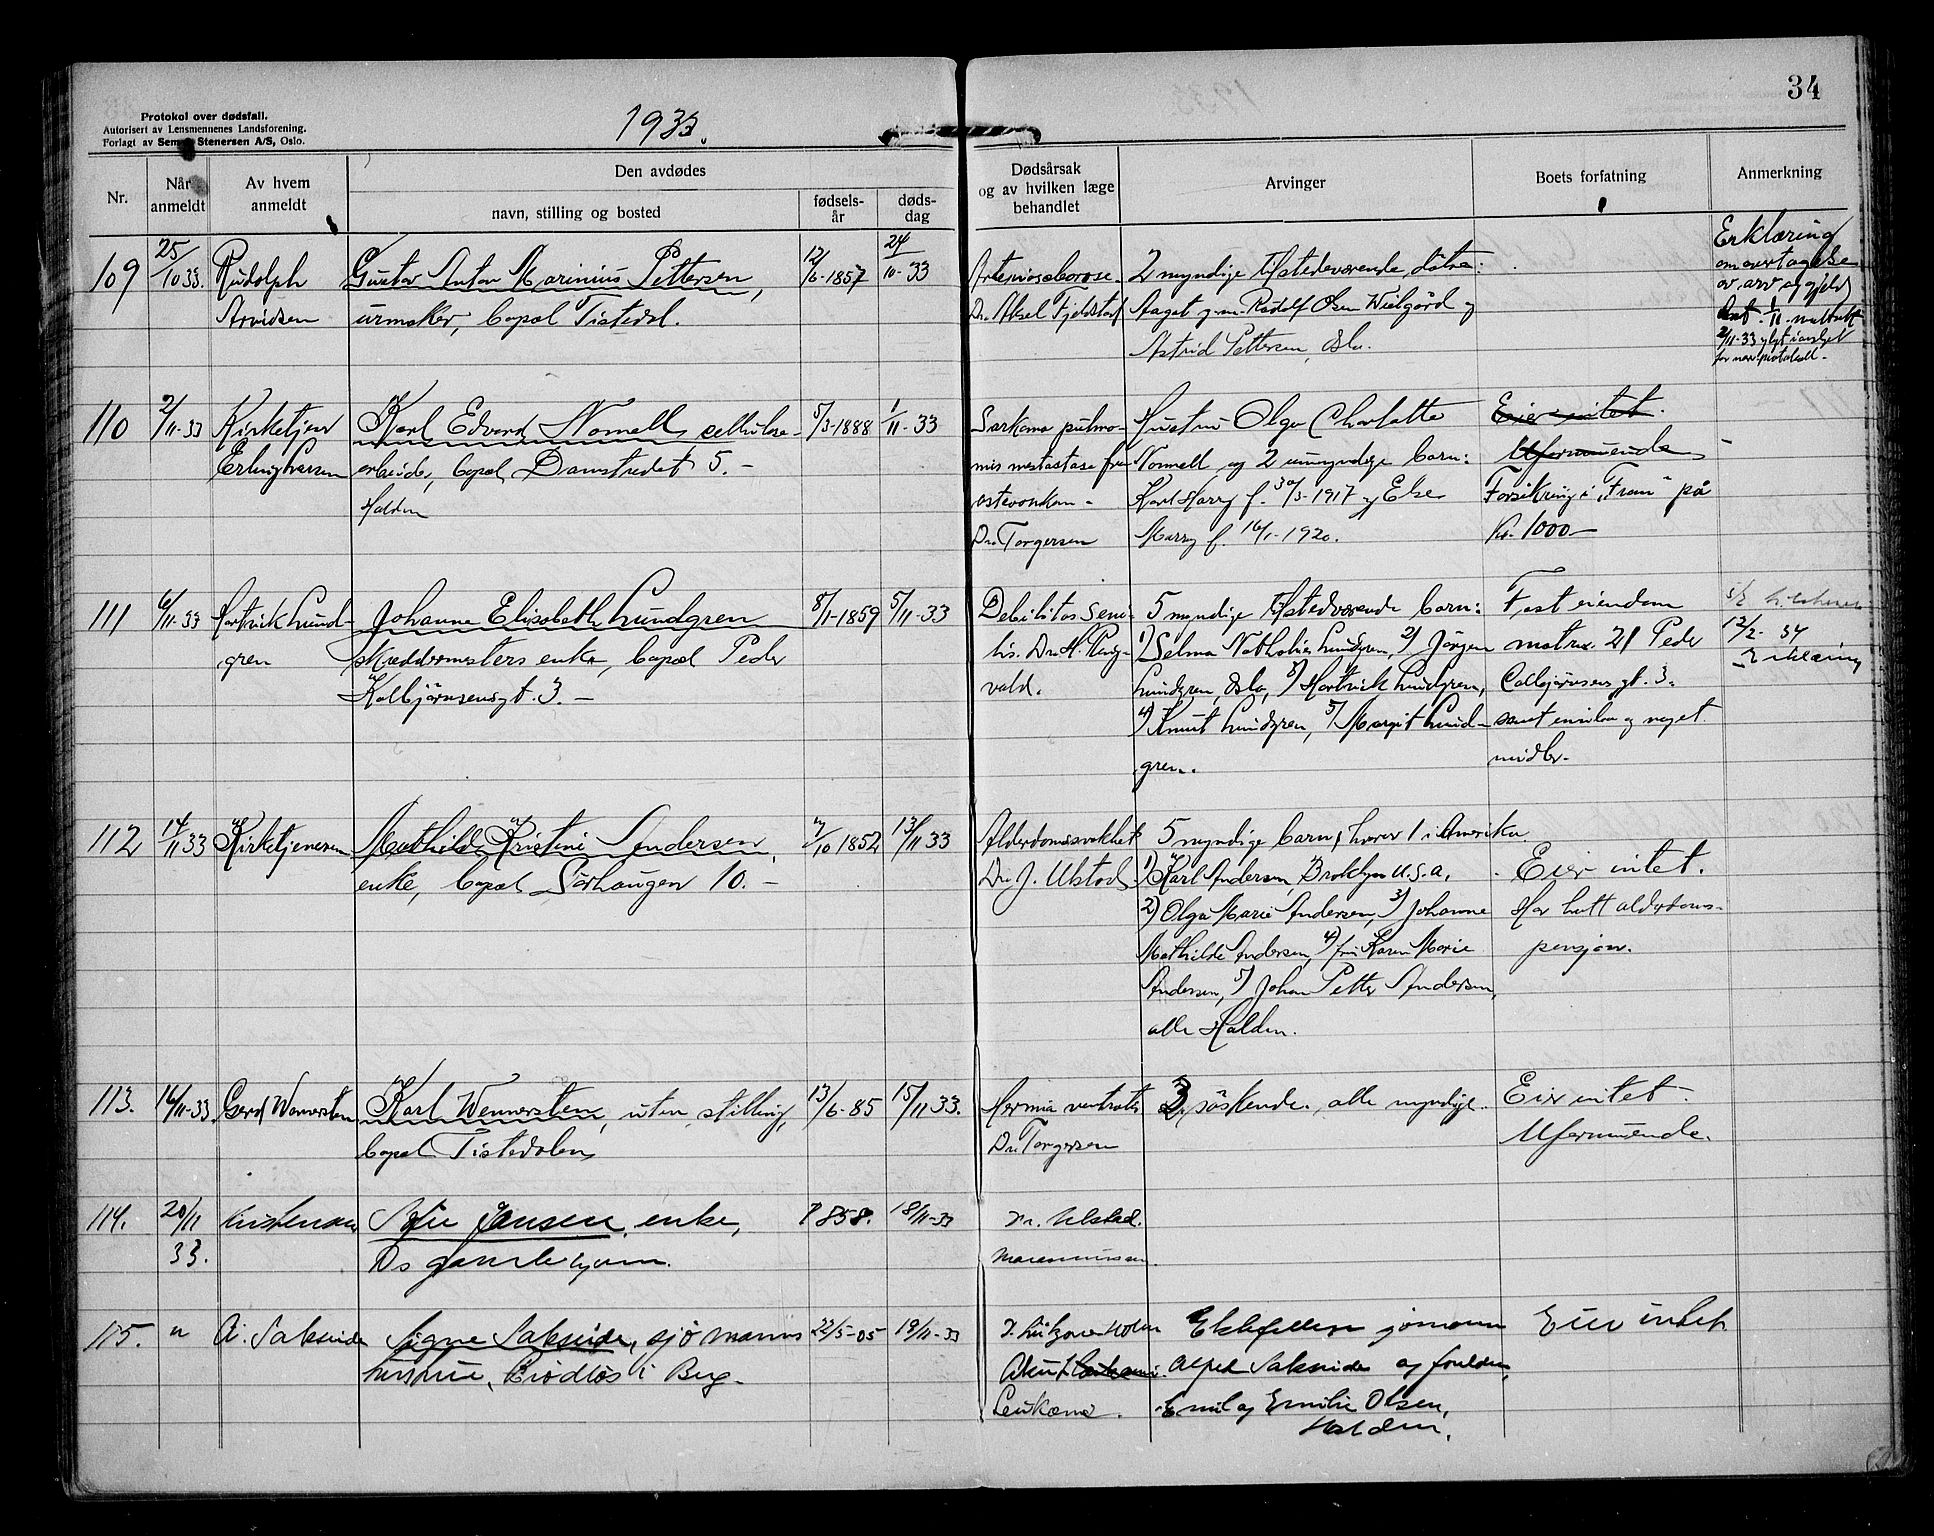 34
Protokol over dødsfall.
Autorisert av Lensmennenes Landsforening.
Forlagt av Sem & Stenersen A/S, Oslo.
1933.
Nr.
Når anmeldt
Av hvem anmeldt
Den avdødes
navn, stilling og bosted
fødsels-
år
døds-
dag
Dødsårsak
og av hvilken læge
behandlet
Arvinger
Boets forfatning
Anmerkning
109 25/10 33. Rudolph
Arvidsen
Gustav Anton Marinius Pettersen,
urmaker, bopæl Tistedal.
12/6-1857
24/10-33
Arteriosclerose.
Dr. Aksel Fjeldstad
2 myndige tilstedeværende døtre:
Aagot g.m. Rudolf Olsen Wielgörd og
Astrid Pettersen, Oslo.
Erklæring
om overtagelse
av arv og gjeld
1/11
2/11-33
110 2/11-33 Kirketjener
Erling Larsen
Karl Edvard Normell, cellulose-
arbeider, bopæl Damstredet 5. -
Halden
5/3-1888
1/11-33
Sarkoma pulmo-
nis metastase fra
Dr. Torgersen
Hustru Olga Charlotte
Normell og 2 umyndige barn:
Karl Harry f. 30/3-1917 og Else
Marry f. 16/1-1920.
Eier intet.
Uformuende
Forsikring i "Fram" på
kr. 1000-
111 6/11-33 Hartvik Lund-
gren
Johanne Elisabeth Lundgren
skreddermesters enke, bopæl Peder
Kolbjørnsensgt. 3. -
8/11-1859
5/11-33
Debilitas seni-
lis. Dr. H.
vald.
5 myndige tilstedeværende barn:
1) Selma Nathalie Lundgren, 2) Jørgen
Lundgren, Oslo, 3) Hartvik Lundgren,
4) Knut Lundgren, 5) Margit Lund-
gren.
Fast eiendom
matr.nr. 21 Peder
Colbjørnsens gt. 3.
samt innbo og noget
midler.
12/2-34
Erklæring
112 14/11 33 Kirketjeneren
Mathilde Kristine Andersen,
enke, bopæl Sørhaugen 10. -
7/10 1852
13/11 33
Alderdomssvakhet
Dr. J. Ulstad
5 myndige barn, hvorav 1 i Amerika.
1) Karl Andersen, Broklyn U.S.A.
2) Olga Marie Andersen, 3) Johanne
Mathilde Andersen, 4) frk. Karen Marie
Andersen, 5) Johan Petter Andersen,
alle Halden.
Eier intet.
Har hatt alderdoms-
pensjon.
113. 16/11-33. Gerd Wennersten
Karl Wennersten, uten stilling,
bopæl Tistedalen
13/6-85
15/11 33.
Hernia ventralis
Dr. Torgersen
3 søskende, alle myndige.
Eier intet.
Uformuende.
114. 20/11
33.
Kristensen
Jensen, enke,
Os gamlehjem.
1858.
18/11-33
Dr. Ulstad.
115. " A. Saksvide
Signe Saksvide, sjømanns
hustrue, Brødløs i Berg.
22/5-05
19/11-33
Akut
Leukæmi.
Ektefellen sjømann
Alfred Saksvide og foreldre,
Emil og Emilie Olsen,
Halden.
Eier intet.